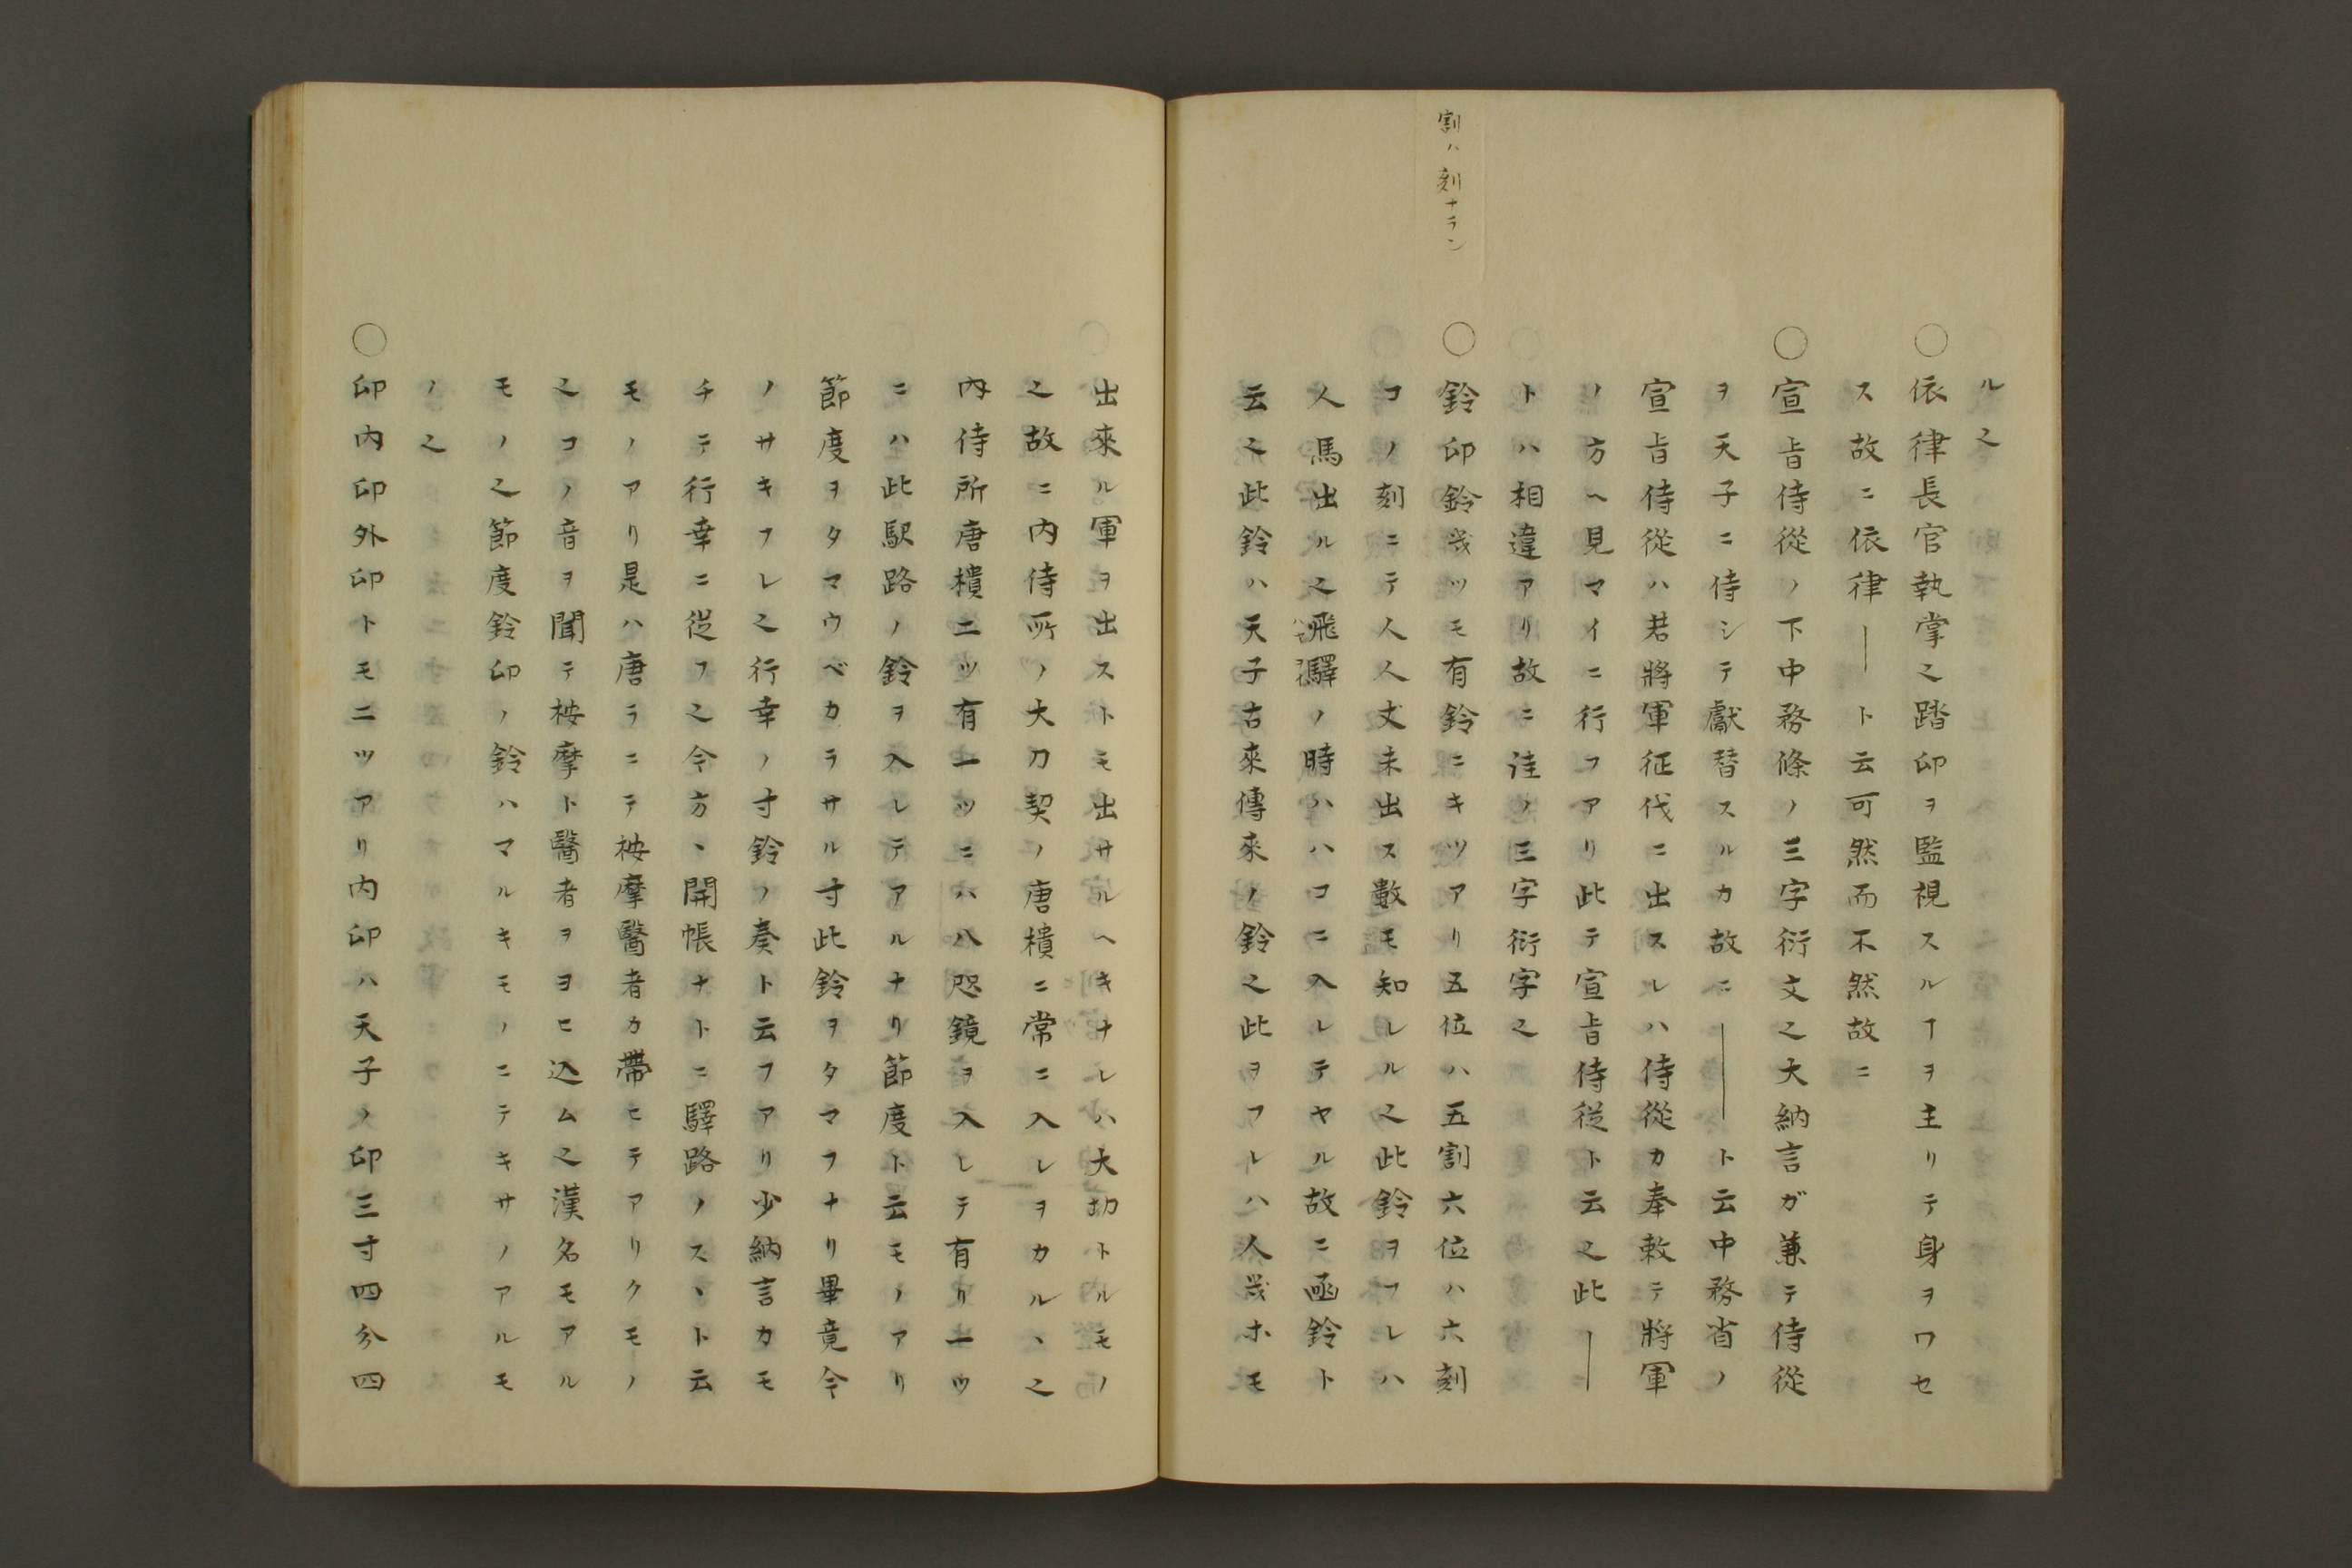 ル之
○依律長官執掌之踏印ヲ監視スルヿヲ主リテ身ヲワセ
ス故ニ依律――ト云可然而不然故ニ
○宣旨侍從ノ下中務條ノ三字衍文之大納言ガ兼テ侍從
ヲ天子ニ侍シテ獻替スルカ故ニ――ト云中務省ノ
宣旨侍從ハ若將軍征伐ニ出スレハ侍從カ奉敕テ將軍
ノ方ヘ見マイニ行フアリ此テ宣旨侍従ト云之此――
トハ相違アリ故ニ註ノ三字衍字之
割ハ刻ナラン
○鈴印鈴幾ツモ有鈴ニキツアリ五位ハ五割六位ハ六刻
コノ刻ニテ人人丈未出ス數モ知レル之此鈴ヲフレハ
人馬出ル之飛驛ノ時ハハコニ入レテヤル故ニ凾鈴ト
云之此鈴ハ天子古來傳來ノ鈴之此ヲフレハ人幾ホモ
出來ル軍ヲ出ストモ出サルヘキナレハ大切トルモノ
之故ニ内侍所ノ大刀契ノ唐樻ニ常ニ入レヲカルヽ之
内侍所唐樻二ツ有一ツニハ八咫鏡ヲ入レテ有リ一ツ
ニハ此駅路ノ鈴ヲ入レテアルナリ節度ト云モノアリ
節度ヲタマウベカラサル寸此鈴ヲタマフナリ畢竟令
ノサキフレ之行幸ノ寸鈴ノ奏ト云フアリ少納言カモ
チテ行幸ニ従フ之今方ヽ開帳ナトニ驛路ノスヽト云
モノアリ是ハ唐ラニテ按摩醫者カ帶ヒテアリクモノ
之コノ音ヲ聞テ按摩ト醫者ヲヨヒ込ム之漢名モアル
モノ之節度鈴印ノ鈴ハマルキモノニテキサノアルモ
ノ之
○印内印外印トモ二ツアリ内印ハ天子ノ印三寸四分四